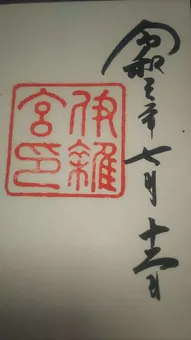 令和元年七月十二日
伊雜宮印